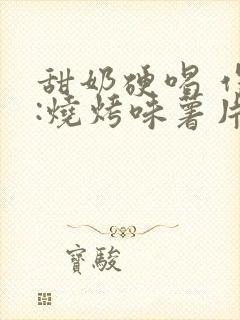 甜奶硬唱
:燒烤味薯片
寶駿